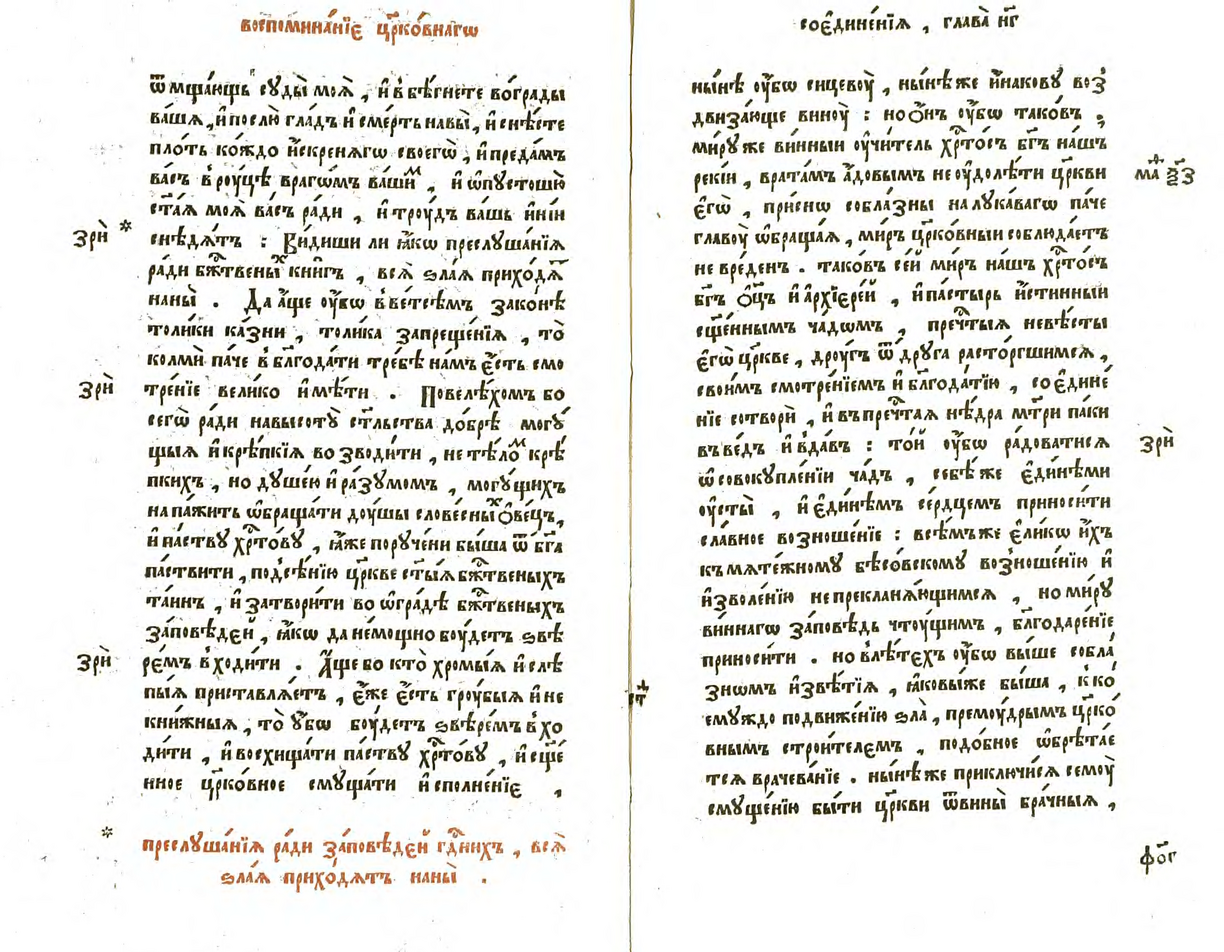 воспомина́нїе цр҃ко́внагѡ
ѿмща́ющъ сꙋды̀ моѧ̀ , и҆ вбѣ́гнете вогра́ды
ва́шѧ , и҆ послю̀ гла́дъ и҆ сме́рть навы̀ , и҆ снѣ́сте
пло́ть ко́ждо и҆́скренѧгѡ своегѡ̀ , и҆ преда́мъ
ва́съ в рꙋ́цѣ врагѡ́мъ ва́шиⷨ , и҆ ѡ҆пꙋстошꙋ̀
ст҃а́ѧ моѧ̀ ва́съ ра́ди , и҆ трꙋ́дъ ва́шь и҆ні́и
зрѝ * снѣдѧ́тъ : Ви́диши ли ꙗ҆́кѡ преслꙋша́нїѧ
ра́ди бж҃твены́ⷯ кни́гъ , всѧ̀ ѕла́ѧ прихо́дѧⷮ
наны̀ . Да а҆́ще оу҆́бѡ в ве́тсѣмъ зако́нѣ
толи́ки ка́зни , толи́ка запреще́нїѧ , то̀
колмѝ па́че в бл҃года́ти тре́бѣ на́мъ є҆́сть смо
зрѝ тре́нїе вели́ко и҆мѣ́ти . Повелѣ́хомъ бо
сегѡ̀ ра́ди навысотꙋ̀ ст҃льства до́брѣ могꙋ́
щыѧ и҆ крѣ́пкїѧ возводи́ти , не тѣ́лоⷨ крѣ́
пкихъ , но дꙋше́ю и҆ ра́зꙋмомъ , могꙋ́щихъ
на па́жить ѡ҆браща́ти дꙋ́шы слове́сныⷯ ѻ҆ве́цъ ,
и҆ па́ствꙋ хрⷭ҇то́вꙋ , ꙗ҆́же порꙋче́ни бы́ша ѿ бг҃а
паствѝти , под сѣ́нїю цр҃кве ст҃ы́ѧ бж҃твеныхъ
та́инъ , и҆ затвори́ти во ѡ҆гра́дѣ бж҃твеныхъ
за́повѣдей , ꙗ҆́кѡ да не́мощно бꙋ́детъ ѕвѣ
зрѝ ре́мъ входи́ти . А҆́ще бо кто̀ хромы́ѧ и҆ слѣ
пы́ѧ приставлѧ́етъ , є҆́же є҆́сть грꙋ́быѧ и҆ не
кни́жныѧ , то̀ ᲂу҆́бѡ бꙋ́детъ ѕвѣре́мъ вхо
ди́ти , и҆ восхища́ти па́ствꙋ хрⷭ҇то́вꙋ , и҆ сщ҃е́
нное цр҃ко́вное смꙋща́ти и҆сполне́нїе ,
* преслꙋша́нїѧ ра́ди за́повѣдей гдⷭ҇нихъ , всѧ̀
ѕла́ѧ прихо́дѧтъ наны̀ .
соедине́нїѧ , глава̀ н҃г
ны́нѣ оу҆́бѡ сицевꙋ̀ , ны́нѣ же и҆на́ковꙋ воз̾
двиза́юще винꙋ̀ : но ѻ҆́нъ оу҆́бѡ тако́въ ,
ми́рꙋ же ви́нныи оу҆чи́тель хрⷭ҇то́съ бг҃ъ на́шъ
рекі́и , врата́мъ а҆́довымъ не оу҆долѣ́ти цр҃кви мⷶ҇ѳ ѯ҃з
є҆гѡ̀ , при́снѡ собла́зны на лꙋка́вагѡ па́че
главꙋ̀ ѡ҆браща́ѧ , ми́ръ цр҃ко́вныи соблюда́етъ
не вреде́нъ . тако́въ се́й ми́ръ на́шъ хрⷭ҇то́съ
бг҃ъ ѻ҆ц҃ъ и҆ а҆рхїере́й , и҆ па́стырь и҆́стинныи
сщ҃е́ннымъ ча́дѡмъ , пречⷭ҇тыѧ невѣ́сты
є҆гѡ̀ цр҃кве , дрꙋ́гъ ѿ дрꙋ́га расто́ргшимсѧ ,
свои́мъ смотре́нїемъ и҆ бл҃года́тїю , соедине́
нїе сотворѝ , и҆ въ пречⷭ҇таѧ нѣ́дра мт҃ри па́ки
въве́дъ и҆ вда́въ : то́й оу҆́бѡ ра́доватисѧ зрѝ
ѡ҆ совокꙋпле́нїи ча́дъ , себѣ́ же є҆ди́нѣми
оу҆сты̀ , и҆ є҆ди́нѣмъ се́рдцемъ приноси́ти
сла́вное возноше́нїе : всѣ́мъ же є҆ли́кѡ и҆́хъ
къ мѧте́жномꙋ бѣсо́вскомꙋ возноше́нїю и҆
и҆зволе́нїю не прекланѧ́ющимсѧ , но ми́рꙋ
ви́ннагѡ за́повѣдь чтꙋ́щимъ , бл҃годаре́нїе
приноси́ти . но в лѣ́техъ оу҆́бѡ вы́ше собла́
знѡмъ и҆звѣ́тїѧ , ꙗ҆ковы́же бы́ша , к ко
емꙋ́ждо подвиже́нїю ѕла̀ , премꙋ́дрымъ цр҃ко́
внымъ строи́телемъ , подо́бное ѡ҆брѣта́е
тсѧ врачева́нїе . ны́нѣ же приключи́сѧ семꙋ̀
смꙋще́нїю бы́ти цр҃кви ѿ вины̀ бра́чныѧ ,
фо҃г